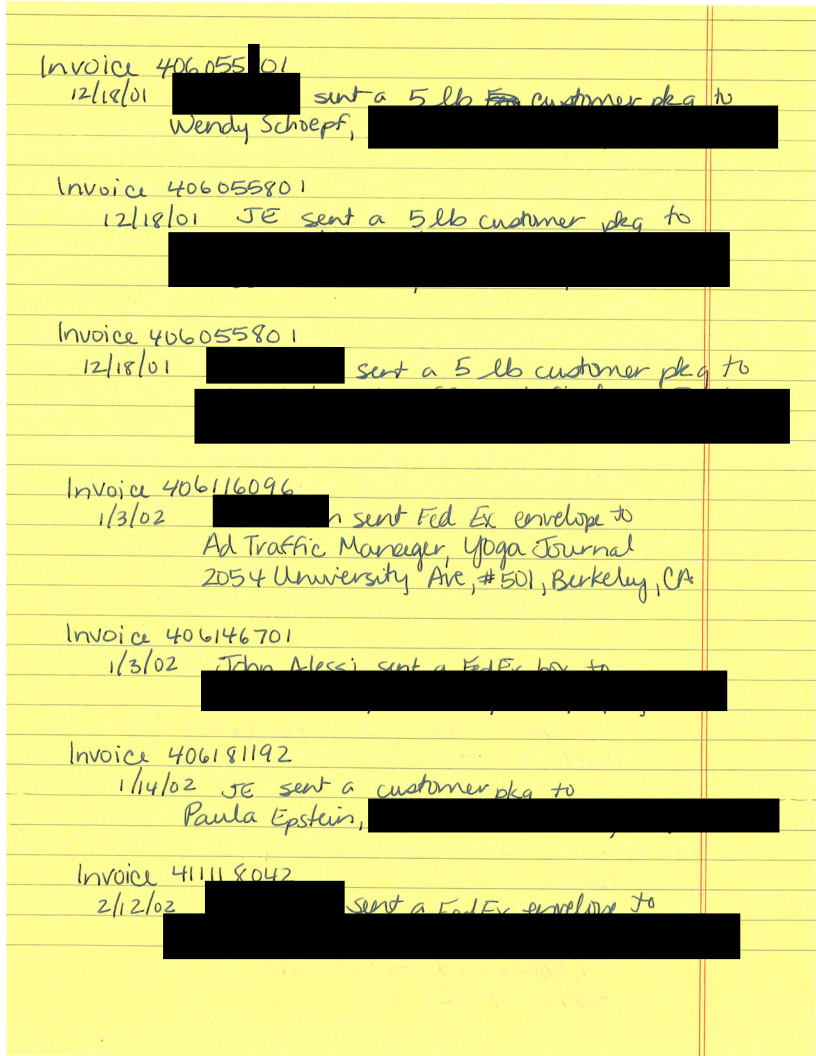 Invoice 406055 01
12/18/01 sent a 5 lb customer pkg to
Wendy Schoepf,
Invoice 406055801
12/18/01 JE sent a 5 lb customer pkg to
Invoice 406055801
12/18/01 sent a 5 lb customer pkg to
Invoice 406116096
1/3/02 n sent Fed Ex envelope to
Ad Traffic Manager, Yoga Journal
2054 University Ave, #501, Berkeley, CA
Invoice 406146701
1/3/02 John Alessi sent a FedEx box to
Invoice 406181192
1/14/02 JE sent a customer pkg to
Paula Epstein,
Invoice 411118042
2/12/02 sent a FedEx envelope to